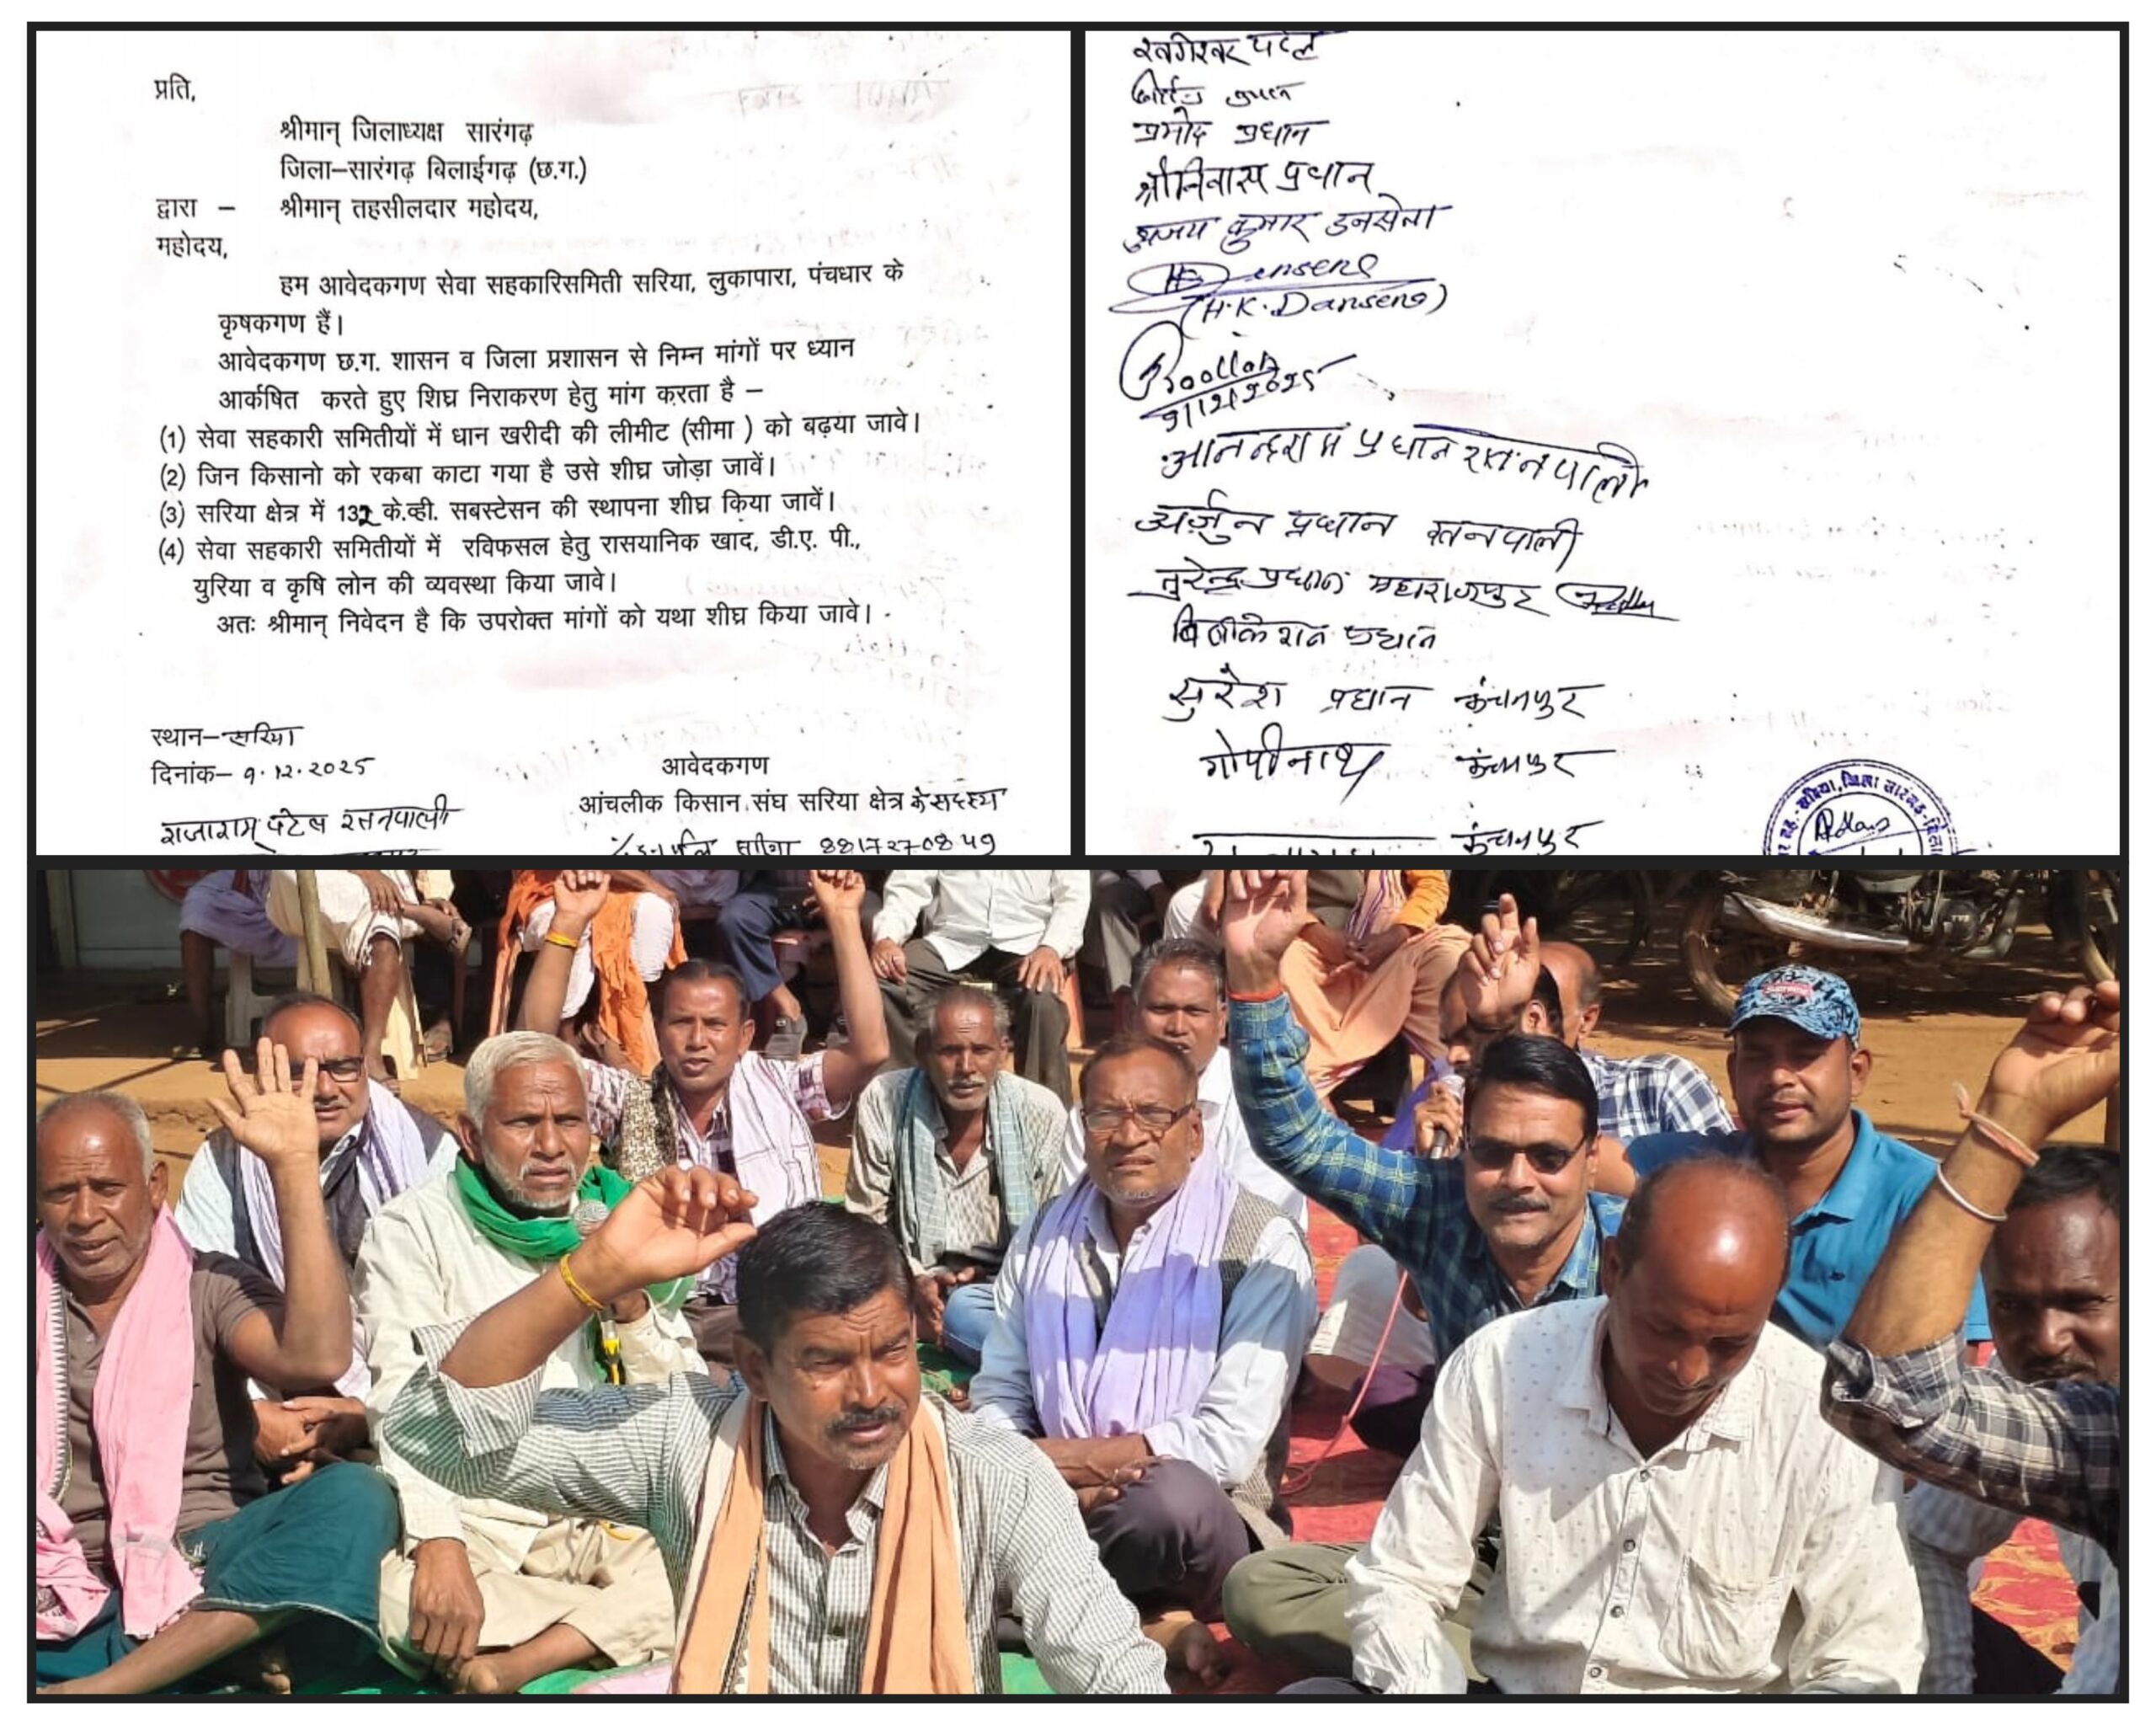 प्रति,
श्रीमान् जिलाध्यक्ष सारंगढ़
जिला–सारंगढ़ बिलाईगढ़ (छ.ग.)
द्वारा – श्रीमान् तहसीलदार महोदय,
महोदय,
हम आवेदकगण सेवा सहकारिसमिती सरिया, लुकापारा, पंचधार के
कृषकगण हैं।
आवेदकगण छ.ग. शासन व जिला प्रशासन से निम्न मांगों पर ध्यान
आर्कषित करते हुए शिघ्र निराकरण हेतु मांग करता है –
(1) सेवा सहकारी समितीयों में धान खरीदी की लीमीट (सीमा ) को बढ़या जावे।
(2) जिन किसानो को रकबा काटा गया है उसे शीघ्र जोड़ा जावें।
(3) सरिया क्षेत्र में 132 के.व्ही. सबस्टेसन की स्थापना शीघ्र किया जावें।
(4) सेवा सहकारी समितीयों में रविफसल हेतु रासयानिक खाद, डी.ए. पी.,
युरिया व कृषि लोन की व्यवस्था किया जावे।
अतः श्रीमान् निवेदन है कि उपरोक्त मांगों को यथा शीघ्र किया जावे।
स्थान– सरिया
दिनांक– 9.12.2025
आवेदकगण
आंचलीक किसान संघ सरिया क्षेत्र के सदस्य
राजाराम पटेल रतनपाली
8817270849
पटेल
प्रमोद प्रधान
श्रीनिवास प्रधान
कुमार डनसेना
(H.K. Dansena)
9/12/2025
आनन्दराम प्रधान रतनपाली
अर्जुन प्रधान रतनपाली
प्रधान महाराजपुर
प्रधान
सुरेश प्रधान कंचनपुर
गोपीनाथ
कंचनपुर